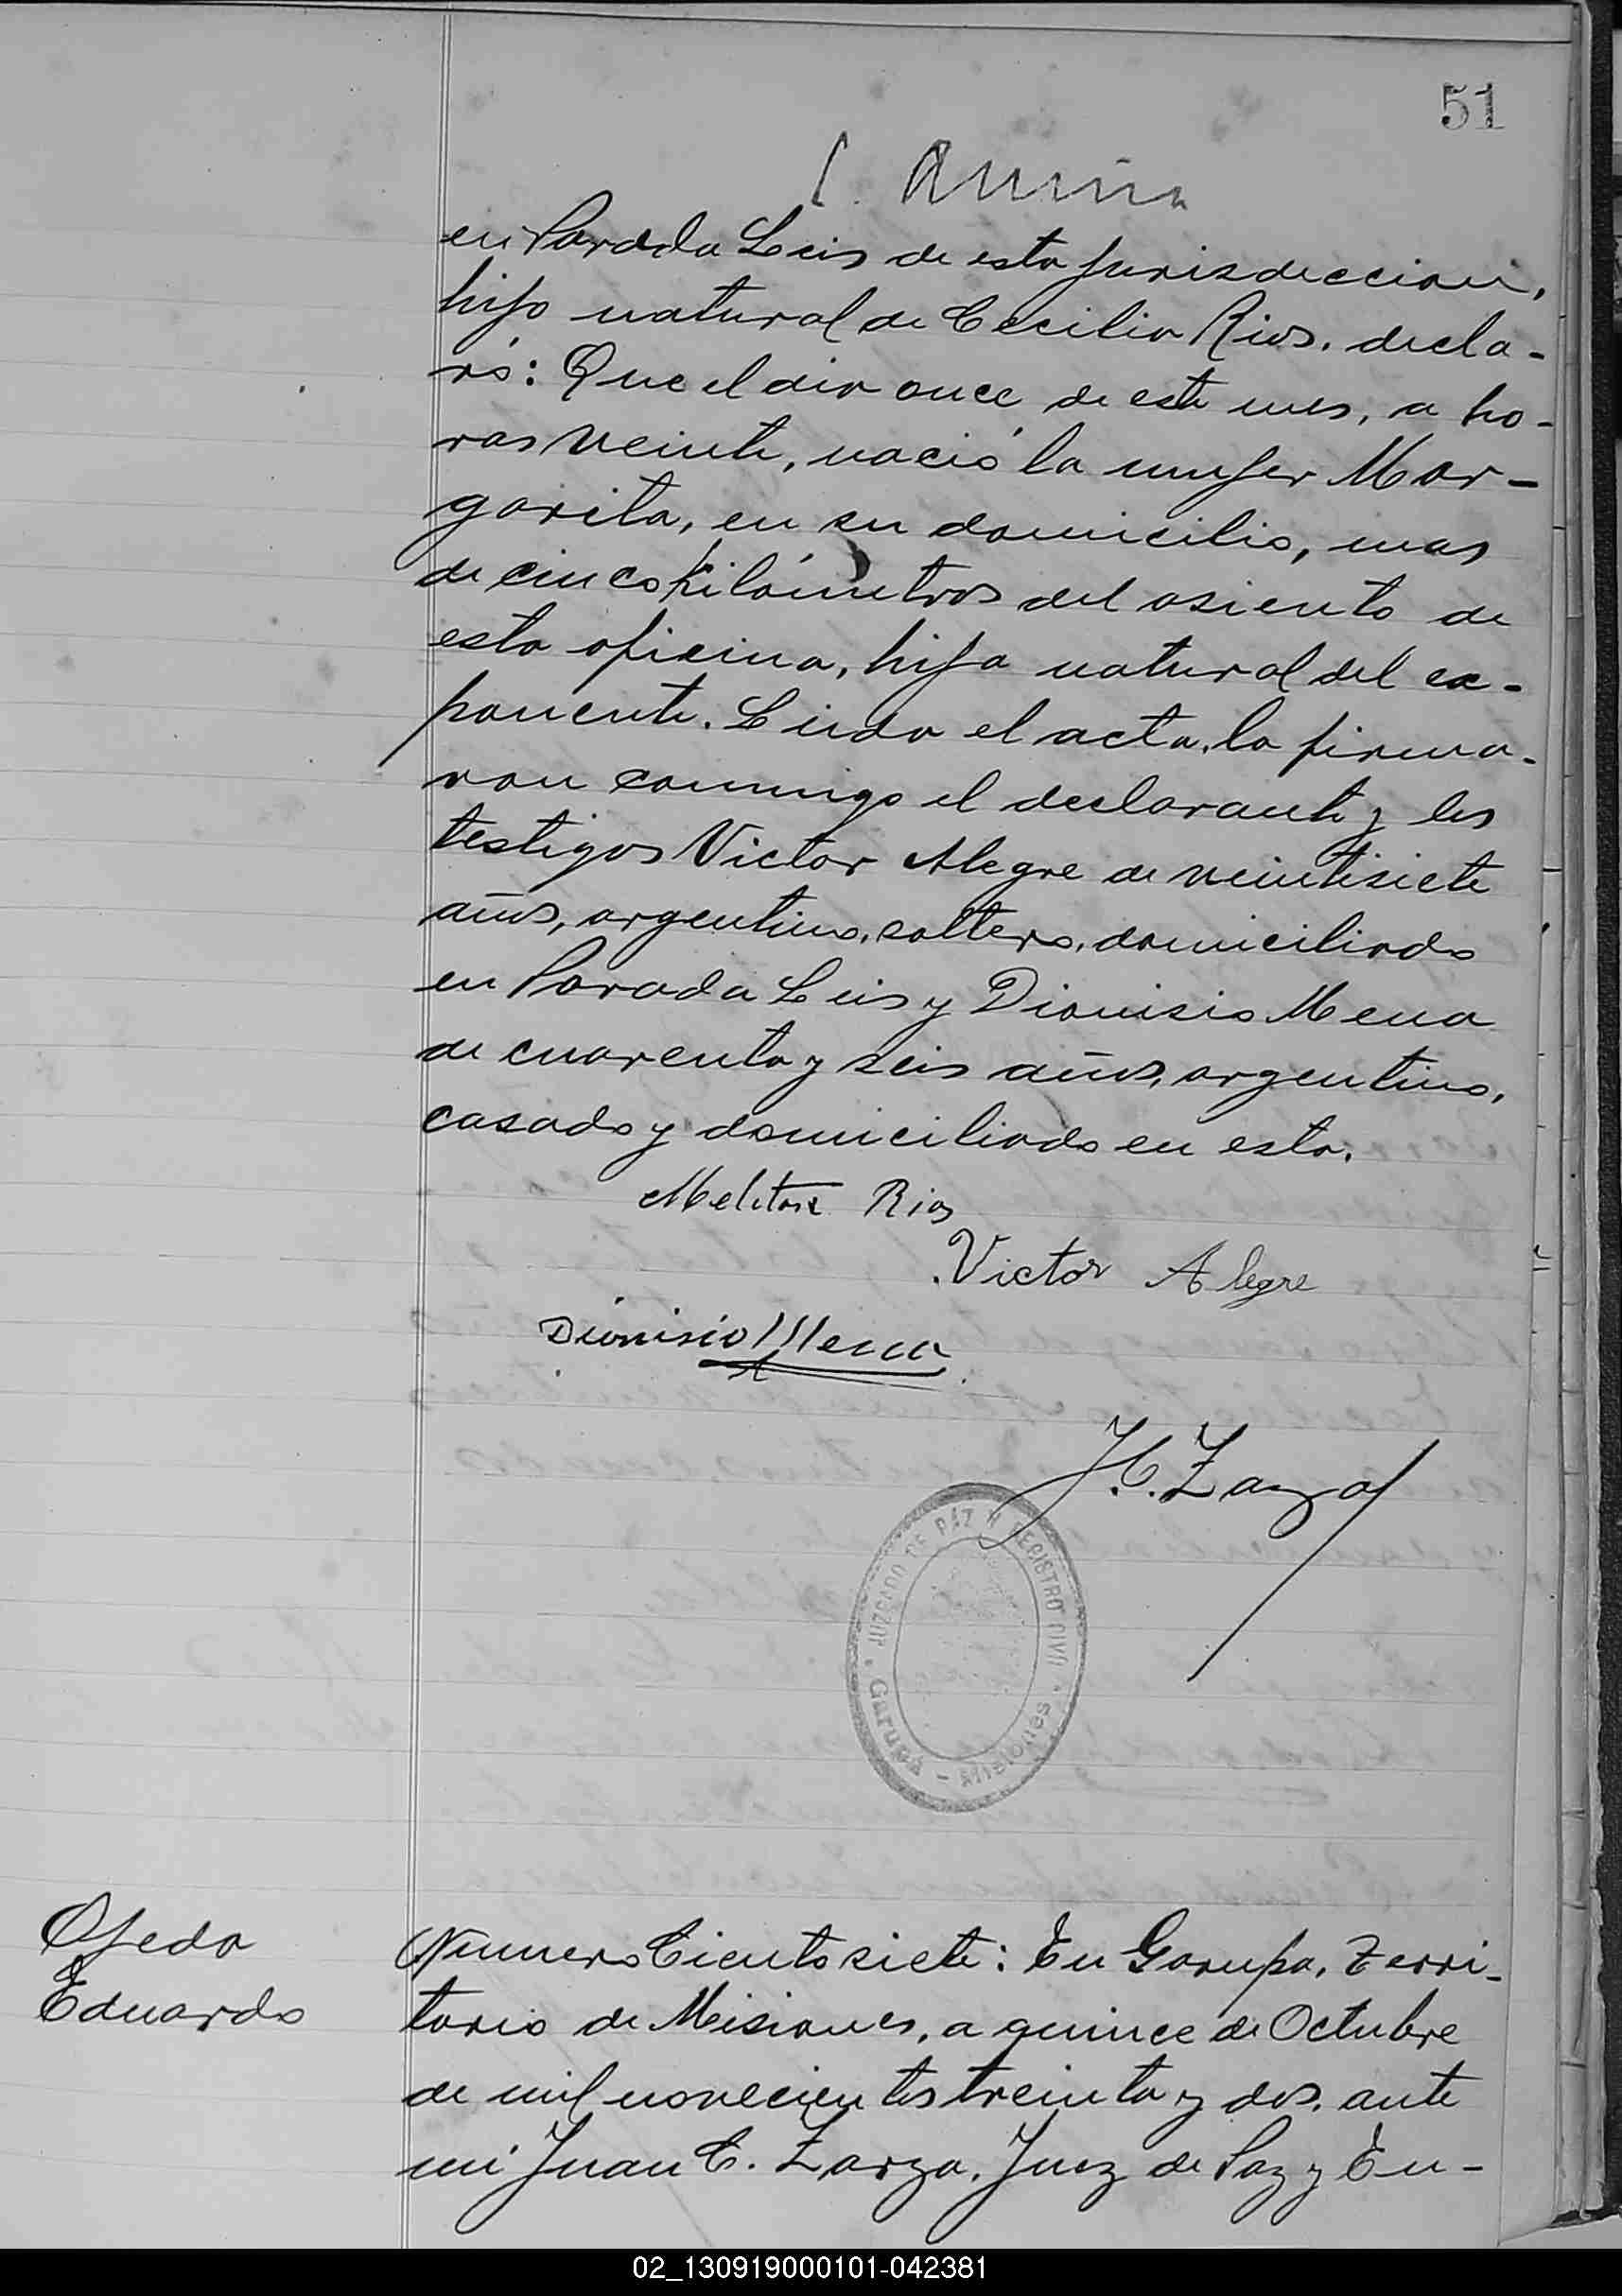 51
en Parada Leis de esta jurisdeccion,
hijo natural de Cecilia Rios, decla-
ró: Que el dia once de este mes, a ho-
ras veinte, nació la mujer Mar-
garita, en su domicilio, mas
de cinco kilómetros del asiento de
esta oficina, hija natural del ex-
ponente. Leida el acta, la firma-
ron conmigo el declarante y los
testigos Victor Alegre de veintisiete
años, argentino, soltero, domiciliado
en Parada Leis y Dionisio Mena
de cuarenta y seis años, argentino,
casado y domiciliado en esta.
Melitona Rios
Victor Alegre
Dionisio Mena
J.C. Zarza
JUZGADO DE PAZ Y REGISTRO CIVIL
Garupá - Misiones
Ojeda
Eduardo
Numero Ciento siete: En Garupa, Terri-
torio de Misiones, a quince de Octubre
de mil novecientos treinta y dos, ante
mi Juan C. Zarza, Juez de Paz y En-
02_130919000101-042381